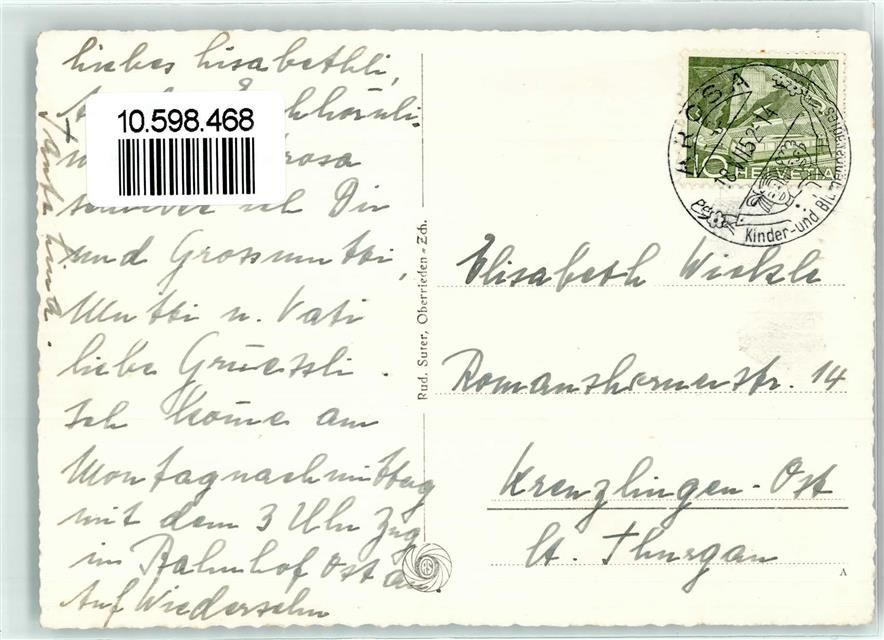 liebes Lisabethli,
10.598.468
rosa
schreibe ich Dir
und Grossmutti,
Mutti u. Vati
liebe Grüessli.
Ich kome am
Montagnachmittag
mit dem 3 Uhr Zug
im Bahnhof Ost an.
Auf Wiedersehn
Tante
Rud. Suter, Oberrieden - Zch.
AROSA
18.VII.52-14
Kinder-und
10
HELVETIA
Elisabeth Wickle
Romanshornerstr. 14
Kreuzlingen-Ost
Ct. Thurgau
A